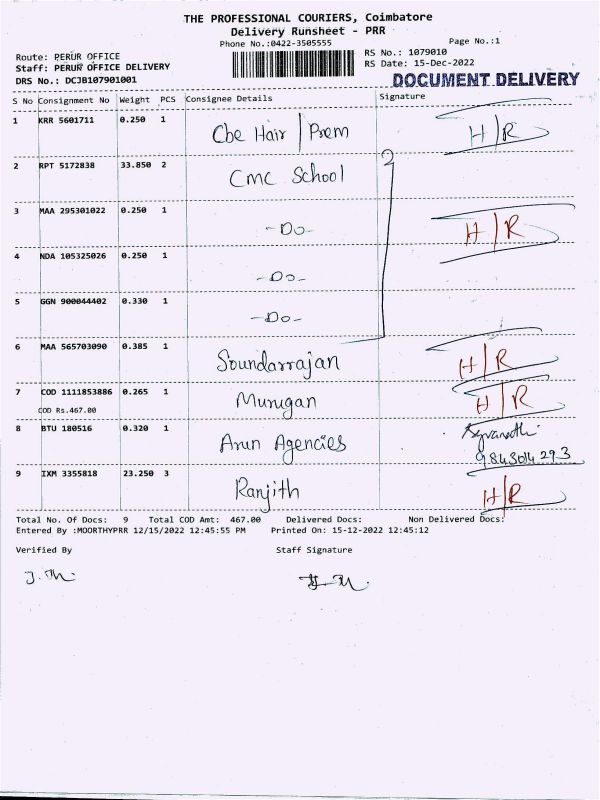 THE PROFESSIONAL COURIERS, Coimbatore
Delivery Runsheet - PRR
Phone No.:0422-3505555
Page No.:1
Route: PERUR OFFICE
RS No.: 1079010
Staff: PERUR OFFICE DELIVERY
RS Date: 15-Dec-2022
DRS No.: DCJB107901001
DOCUMENT DELIVERY
S No Consignment No Weight PCS Consignee Details Signature
1 KRR 5601711 0.250 1 Cbe Hair | Prem H/R
2 RPT 5172838 33.850 2 Cmc School
3 MAA 295301022 0.250 1 -Do- H/R
4 NDA 105325026 0.250 1 -Do-
5 GGN 900044402 0.330 1 -Do-
6 MAA 565703090 0.385 1 Soundarrajan H/R
7 COD 1111853886 0.265 1 Murugan H/R
COD Rs.467.00
8 BTU 180516 0.320 1 Arun Agencies
9843014293
9 IXM 3355818 23.250 3 Ranjith H/R
Total No. Of Docs: 9 Total COD Amt: 467.00 Delivered Docs: Non Delivered Docs:
Entered By :MOORTHYPRR 12/15/2022 12:45:55 PM Printed On: 15-12-2022 12:45:12
Verified By Staff Signature